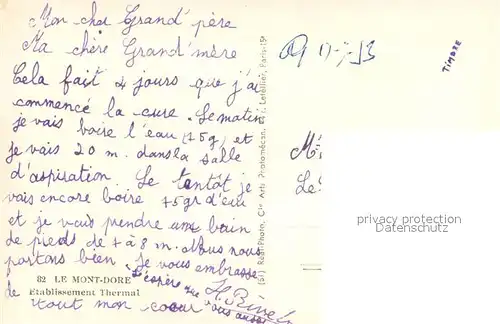 Mon cher Grand'père
Ma chère Grand'mère
Cela fait 4 jours que j'ai
commencé la cure. Le matin
je vais boire l'eau (75g) et
je vais 20 m. dans la salle
d'aspiration. Le tentôt je
vais encore boire 75gr d'eau
et je vais prendre un bain
de pieds de 7 à 8 m. Nous nous
portons bien. Je vous embrasse
J'espère que vous aussi
de tout mon coeur
82 LE MONT-DORE
Etablissement Thermal
(57) Real-Photo, Cie Arts Photomécan., Letellier, Paris-15e
TIMBRE
M
Le
privacy protection
Datenschutz